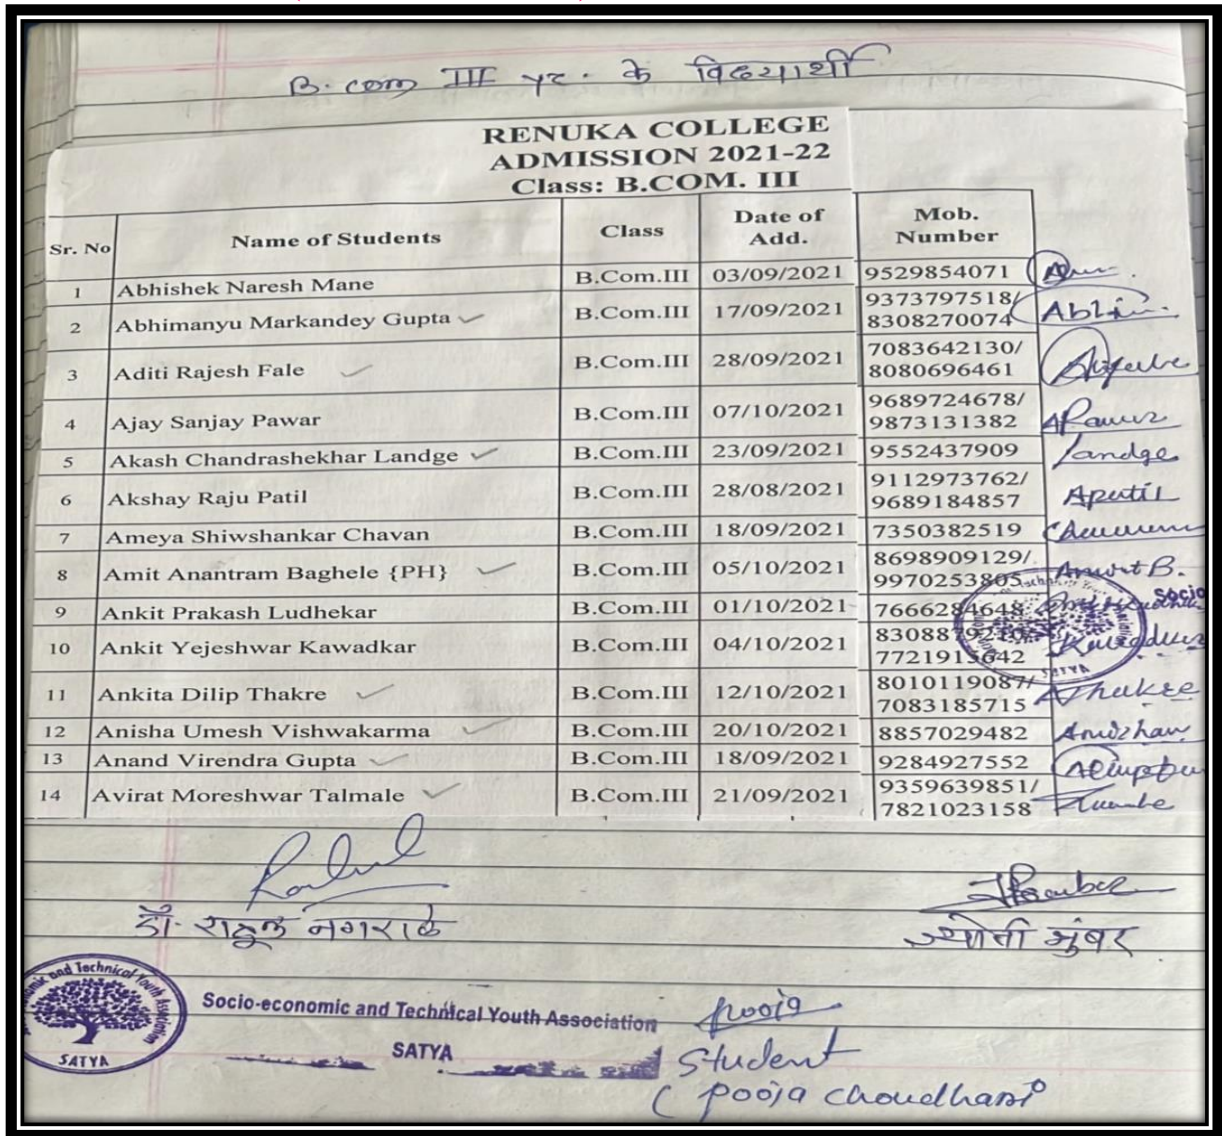 B. com III yr. के विद्यार्थी
RENUKA COLLEGE
ADMISSION 2021-22
Class: B.COM. III
Sr. No Name of Students Class Date of Add. Mob. Number
1 Abhishek Naresh Mane B.Com.III 03/09/2021 9529854071
2 Abhimanyu Markandey Gupta B.Com.III 17/09/2021 9373797518/ 8308270074
3 Aditi Rajesh Fale B.Com.III 28/09/2021 7083642130/ 8080696461
4 Ajay Sanjay Pawar B.Com.III 07/10/2021 9689724678/ 9873131382 APawar
5 Akash Chandrashekhar Landge B.Com.III 23/09/2021 9552437909 Landge
6 Akshay Raju Patil B.Com.III 28/08/2021 9112973762/ 9689184857 Apatil
7 Ameya Shiwshankar Chavan B.Com.III 18/09/2021 7350382519
8 Amit Anantram Baghele {PH} B.Com.III 05/10/2021 8698909129/ 9970253805 B.
9 Ankit Prakash Ludhekar B.Com.III 01/10/2021 7666284648 Socio
10 Ankit Yejeshwar Kawadkar B.Com.III 04/10/2021 7721915642
SATYA
11 Ankita Dilip Thakre B.Com.III 12/10/2021 8010119087/ 7083185715 AThakre
12 Anisha Umesh Vishwakarma B.Com.III 20/10/2021 8857029482
13 Anand Virendra Gupta B.Com.III 18/09/2021 9284927552
14 Avirat Moreshwar Talmale B.Com.III 21/09/2021 9359639851/ 7821023158
Rahul
डॉ. राहूल नगराळे
ज्योती भुंबर
and Technical Youth Association
SATYA
Socio-economic and Technical Youth Association
SATYA
Pooja
Student
( Pooja Choudhari